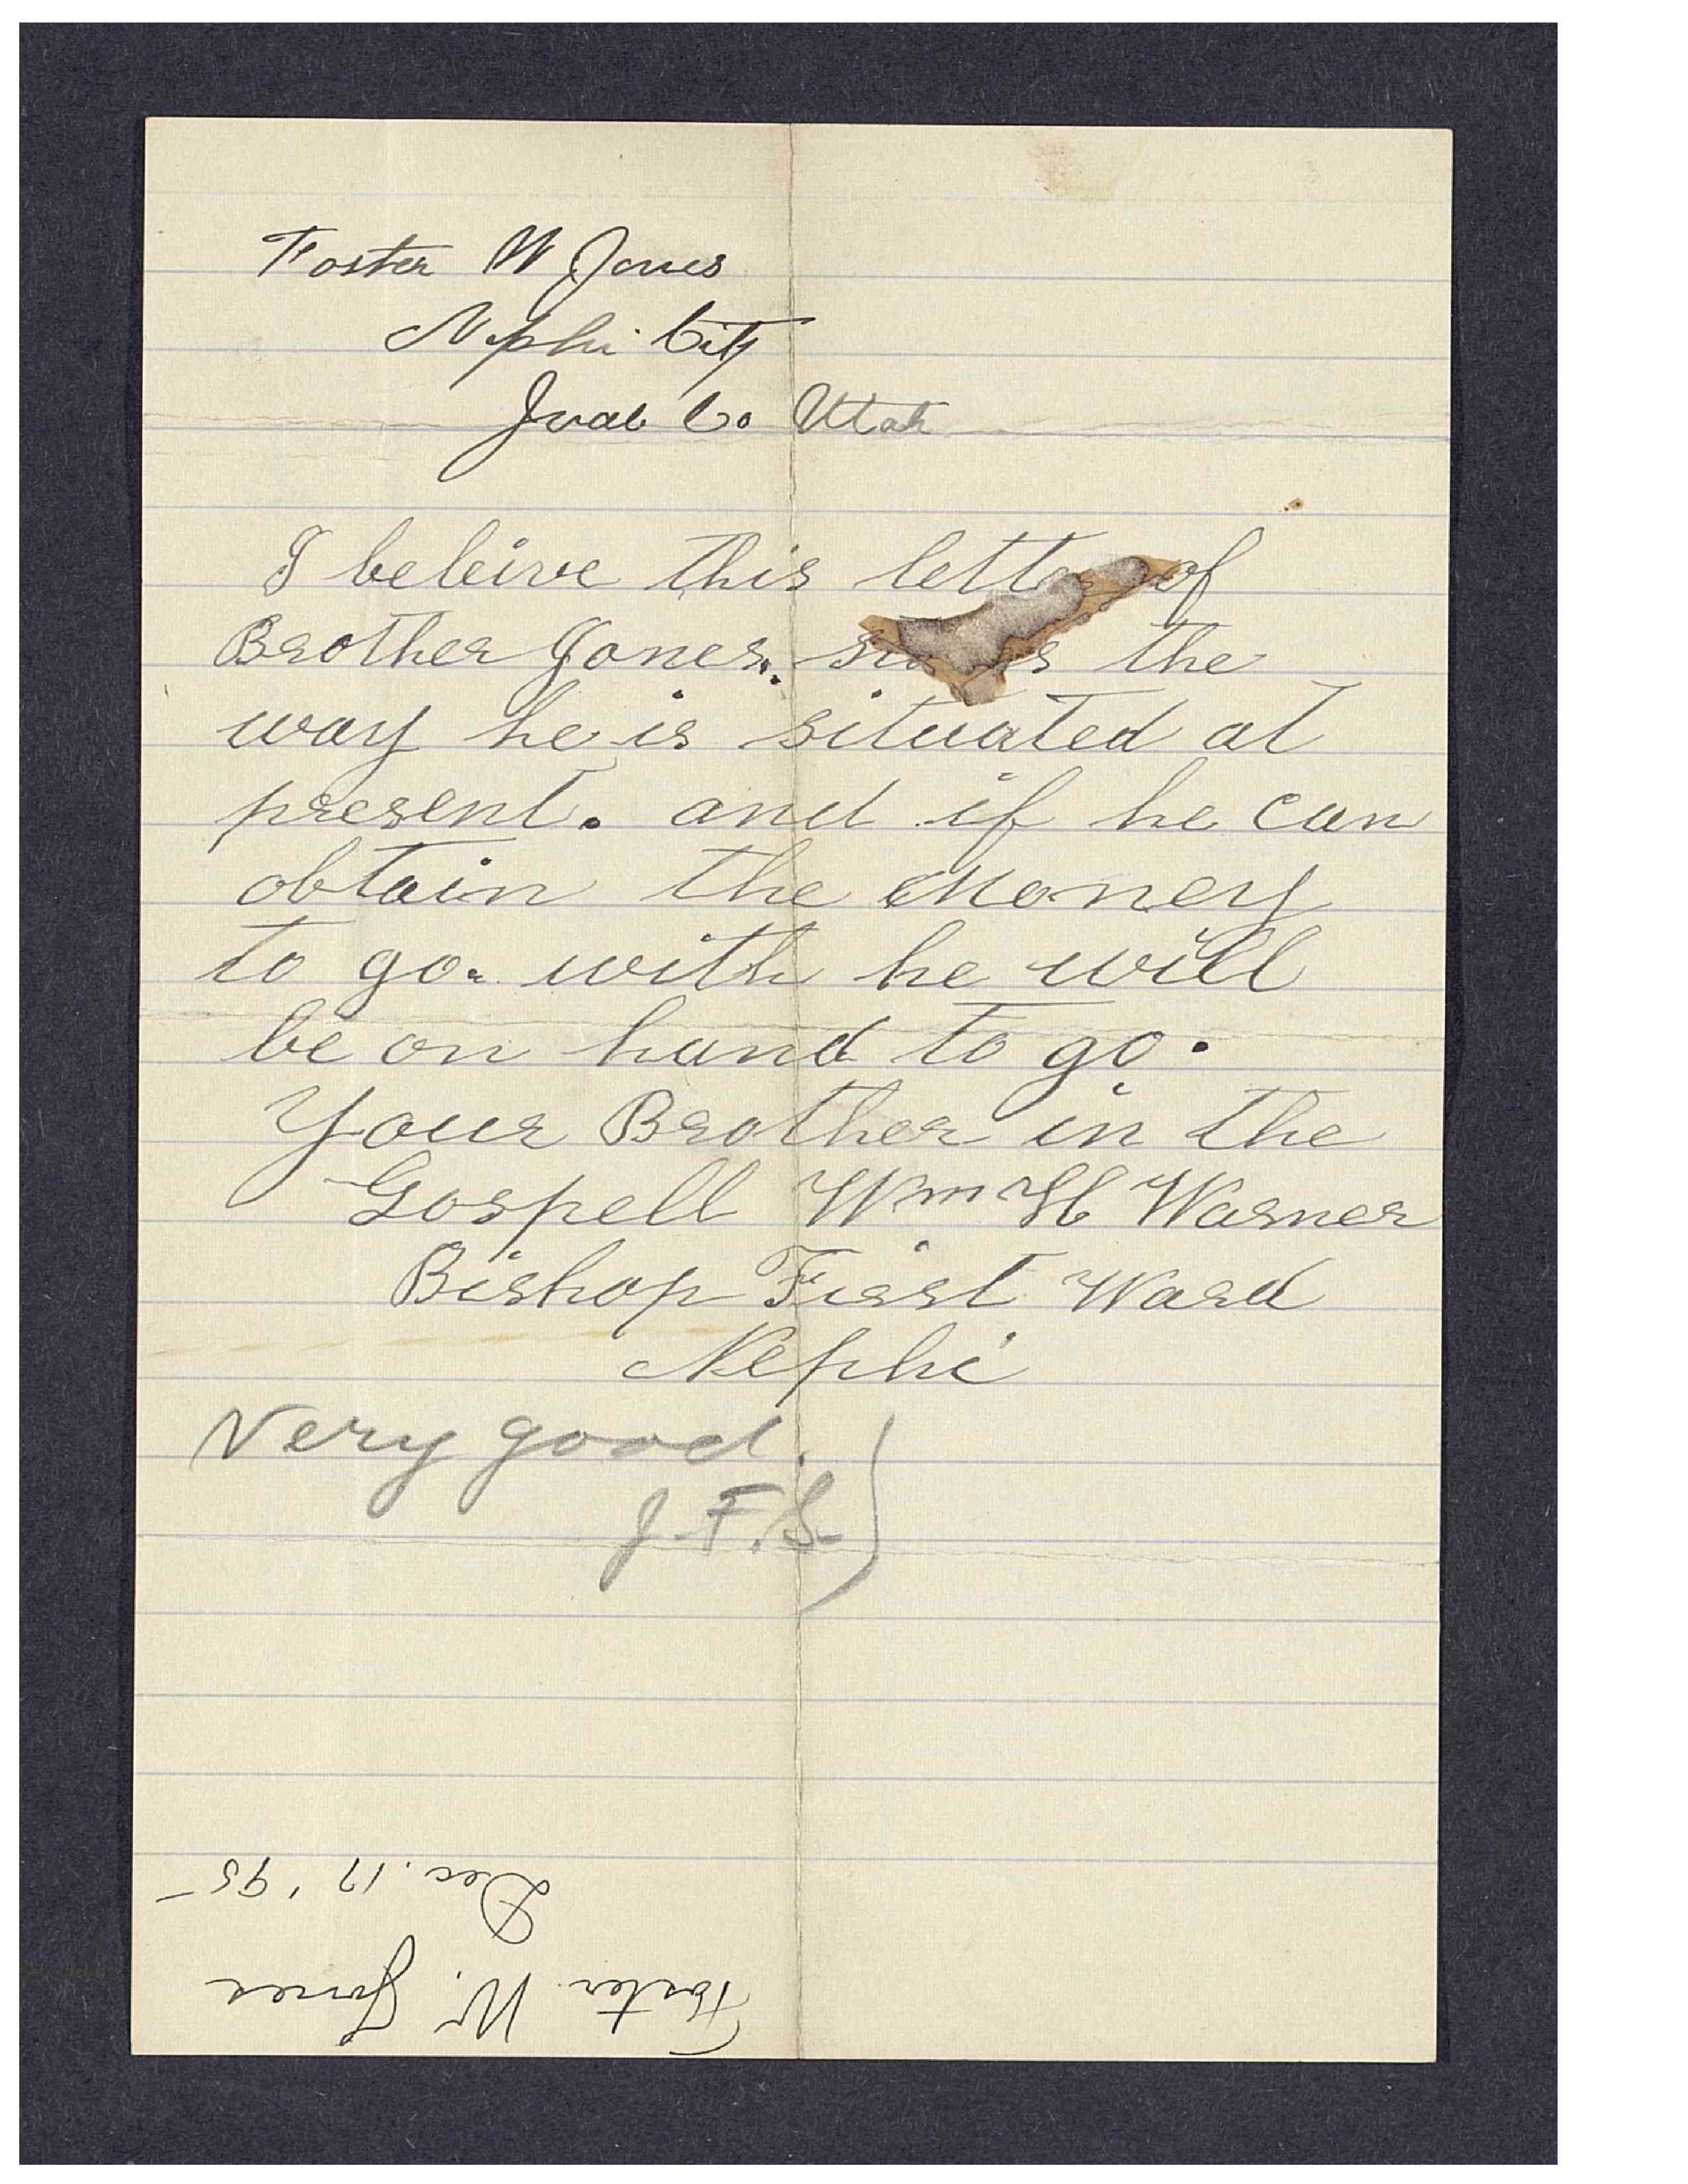 Foster W Jones
Nephi City
Juab Co Utah
I beleive this letter of
Brother Jones. the
way he is situated at
present. and if he can
obtain the Money
to go. with he will
be on hand to go.
Your Brother in the
Gospell Wm H Warner
Bishop First Ward
Nephi
Very good.
J.F.S.
Dec. 17 '95
Foster W. Jones